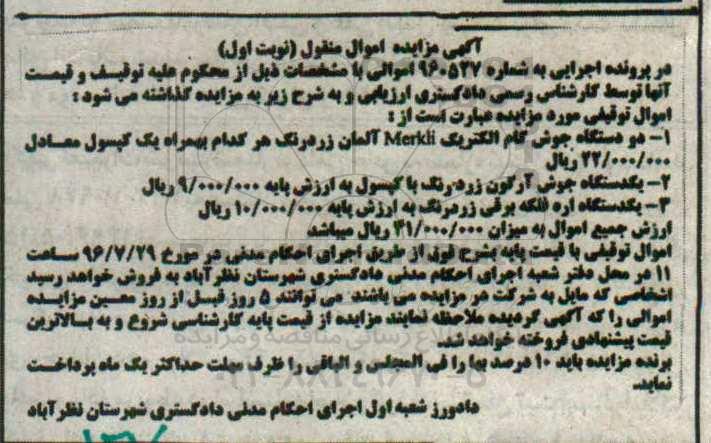 آگهی مزایده اموال منقول (نوبت اول)
در پرونده اجرایی به شماره ۹۶۰۵۲۷ اموالی با مشخصات ذیل از محکوم علیه توقیف و قیمت
آنها توسط کارشناس رسمی دادگستری ارزیابی و به شرح زیر به مزایده گذاشته می شود :
اموال توقیفی مورد مزایده عبارت است از :
۱- دو دستگاه جوش گام الکتریک Merkli آلمان زردرنگ هر کدام بهمراه یک کپسول معادل
۲۲/۰۰۰/۰۰۰ ریال
۲- یکدستگاه جوش آرگون زردرنگ با کپسول به ارزش پایه ۹/۰۰۰/۰۰۰ ریال
۳- یکدستگاه اره افکه برقی زردرنگ به ارزش پایه ۱۰/۰۰۰/۰۰۰ ریال
ارزش جمیع اموال به میزان ۳۱/۰۰۰/۰۰۰ ریال میباشد
اموال توقیفی با قیمت پایه بشرح فوق از طریق اجرای احکام مدنی در مورخ ۹۶/۷/۲۹ ساعت
۱۱ در محل دفتر شعبه اجرای احکام مدنی دادگستری شهرستان نظرآباد به فروش خواهد رسید
اشخاصی که مایل به شرکت در مزایده می باشند می توانند ۵ روز قبل از روز معین مزایده
اموالی را که آگهی گردیده ملاحظه نمایند مزایده از قیمت پایه کارشناسی شروع و به بالاترین
قیمت پیشنهادی فروخته خواهد شد.
برنده مزایده باید ۱۰ درصد بها را فی المجلس و الباقی را ظرف مهلت حداکثر یک ماه پرداخت
نماید.
دادورز شعبه اول اجرای احکام مدنی دادگستری شهرستان نظرآباد